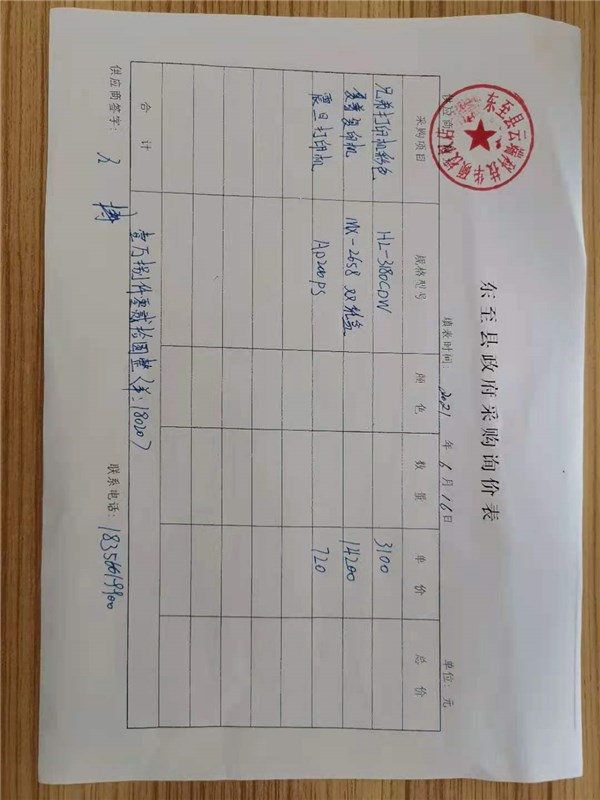 东至县政府采购询价表
填表时间: 2021 年 6 月 16 日 单位: 元
东至县云
采购项目 规格型号 颜色 数量 单价 总价
兄弟打印机彩色 HL-3180CDW 3100
复印机 MX-2658 双纸盒 14200
震旦打印机 AD200PS 720
合计 壹万捌仟零贰拾圆整 (¥: 18020)
供应商签字: 联系电话: